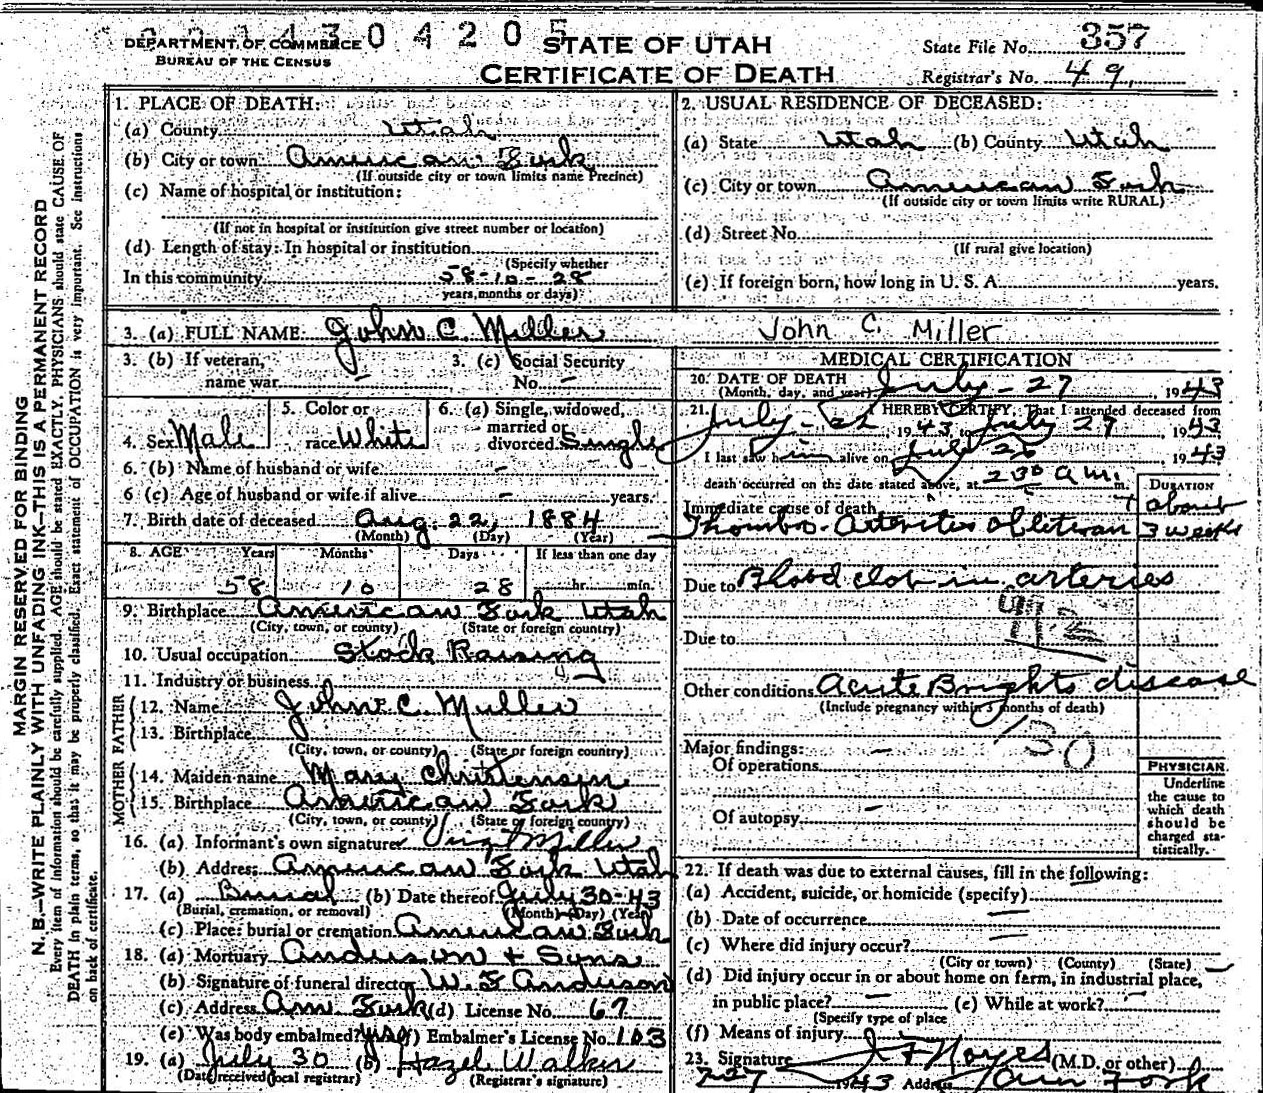 0 4 2 0 5
DEPARTMENT OF COMMERCE
BUREAU OF THE CENSUS
STATE OF UTAH
CERTIFICATE OF DEATH
State File No. 357
Registrar's No. 49
MARGIN RESERVED FOR BINDING
N. B.—WRITE PLAINLY WITH UNFADING INK—THIS IS A PERMANENT RECORD
Every item of information should be carefully supplied. AGE should be stated EXACTLY. PHYSICIANS should state CAUSE OF
DEATH in plain terms, so that it may be properly classified. Exact statement of OCCUPATION is very important. See instructions
on back of certificate.
1. PLACE OF DEATH:
(a) County Utah
(b) City or town American Fork
(If outside city or town limits name Precinct)
(c) Name of hospital or institution:
(If not in hospital or institution give street number or location)
(d) Length of stay: In hospital or institution
(Specify whether
In this community 58-10-28
years, months or days)
2. USUAL RESIDENCE OF DECEASED:
(a) State Utah (b) County Utah
(c) City or town American Fork
(If outside city or town limits write RURAL)
(d) Street No.
(If rural give location)
(e) If foreign born, how long in U. S. A. years.
3. (a) FULL NAME John C. Miller John C. Miller
3. (b) If veteran, name war –
3. (c) Social Security No. –
4. Sex Male
5. Color or race White
6. (a) Single, widowed, married or divorced Single
6. (b) Name of husband or wife –
6 (c) Age of husband or wife if alive – years.
7. Birth date of deceased Aug. 22, 1884
(Month) (Day) (Year)
8. AGE Years Months Days If less than one day
58 10 28 hr. min.
9. Birthplace American Fork Utah
(City, town, or county) (State or foreign country)
10. Usual occupation Stock Raising
11. Industry or business
FATHER
12. Name John C. Miller
13. Birthplace
(City, town, or county) (State or foreign country)
MOTHER
14. Maiden name Mary Christensen
15. Birthplace American Fork
(City, town, or county) (State or foreign country)
16. (a) Informant's own signature Miller
(b) Address American Fork Utah
17. (a) Burial (b) Date thereof July 30-43
(Burial, cremation, or removal) (Month) (Day) (Year)
(c) Place: burial or cremation American Fork
18. (a) Mortuary Anderson & Sons
(b) Signature of funeral director W. F. Anderson
(c) Address Am. Fork (d) License No. 67
(e) Was body embalmed? yes (f) Embalmer's License No. 103
19. (a) July 30 (b) Hazel Walker
(Date received local registrar) (Registrar's signature)
MEDICAL CERTIFICATION
20. DATE OF DEATH July - 27, 1943
(Month, day, and year)
21. I HEREBY CERTIFY, That I attended deceased from
July - 22, 1943 to July 27, 1943
I last saw him alive on July 26 1943
death occurred on the date stated above, at 2 30 a.m. m.
DURATION
Immediate cause of death about
Thombo-Arteritis Obliteran 3 weeks
Due to Blood clot in arteries
Due to
Other conditions Acute Brights disease
(Include pregnancy within 3 months of death)
130
Major findings:
Of operations –
Of autopsy –
PHYSICIAN
Underline the cause to which death should be charged statistically.
22. If death was due to external causes, fill in the following:
(a) Accident, suicide, or homicide (specify)
(b) Date of occurrence –
(c) Where did injury occur? –
(City or town) (County) (State)
(d) Did injury occur in or about home on farm, in industrial place, –
in public place? – (e) While at work? –
(Specify type of place
(f) Means of injury –
23. Signature J F Noyes (M.D. or other)
7-27 1943 Address Am Fork